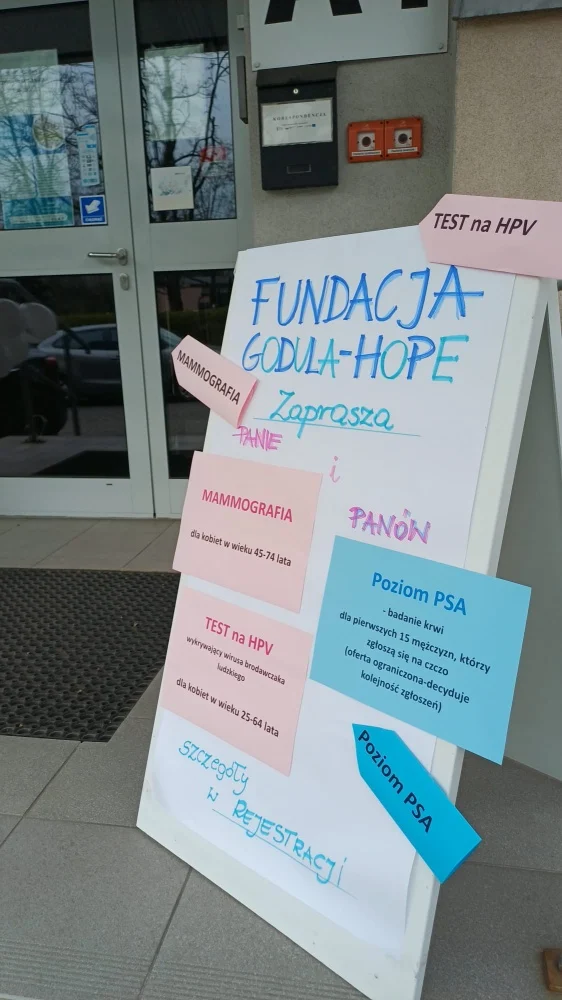 TEST na HPV
FUNDACJA
GODULA-HOPE
MAMMOGRAFIA
Zaprasza
PANIE
i
PANÓW
MAMMOGRAFIA
dla kobiet w wieku 45-74 lata
Poziom PSA
- badanie krwi
dla pierwszych 15 mężczyzn, którzy
zgłoszą się na czczo
(oferta ograniczona-decyduje
kolejność zgłoszeń)
TEST na HPV
wykrywający wirusa brodawczaka
ludzkiego
dla kobiet w wieku 25-64 lata
Poziom PSA
Szczegóły
w REJESTRACJI